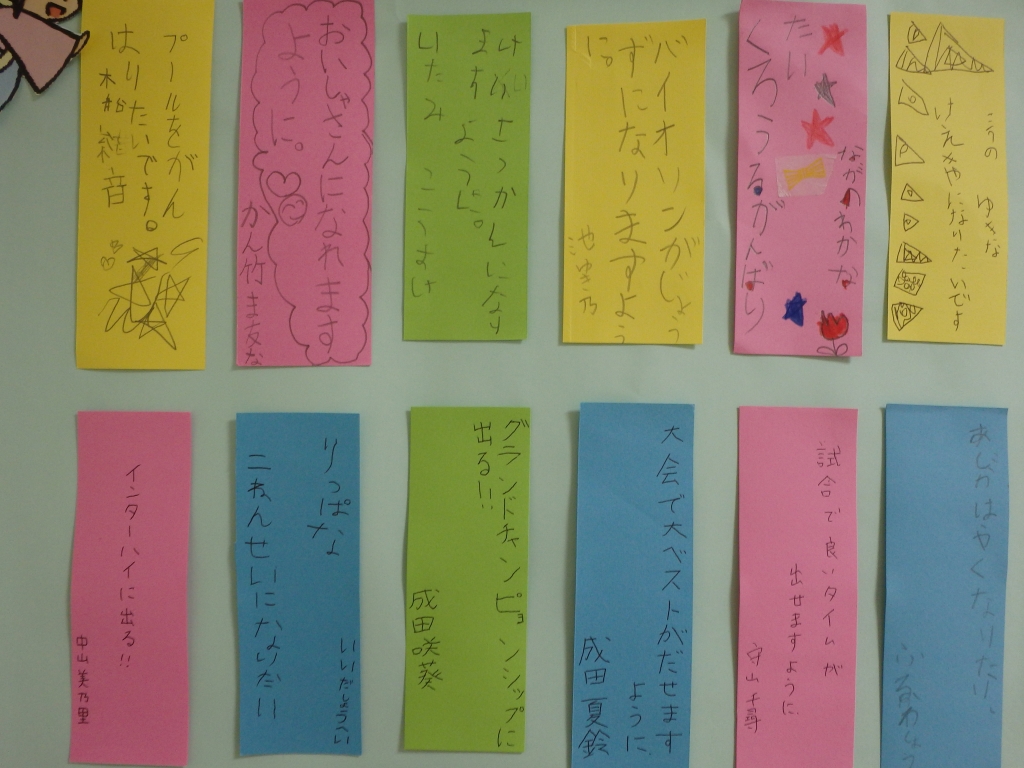 プールをがん
はりたいです。
おいしゃさんになれます
ように。
かん竹まなな
けいさつかんになり
ますように。
いたみ こうすけ
バイオリンがじょう
ずになりますよう
に。
ながのわかな
くろうるがんばり
たい
こうの ゆきな
けえきやになりたいです
インターハイに出る!!
中山美乃里
りっぱな
二ねんせいになりたい
いいだしょうへい
グランドチャンピョンシップに
出る!!
成田咲葵
大会で大ベストがだせます
ように
成田夏鈴
試合で良いタイムが
出せますように
守山千尋
あしがはやくなりたい。